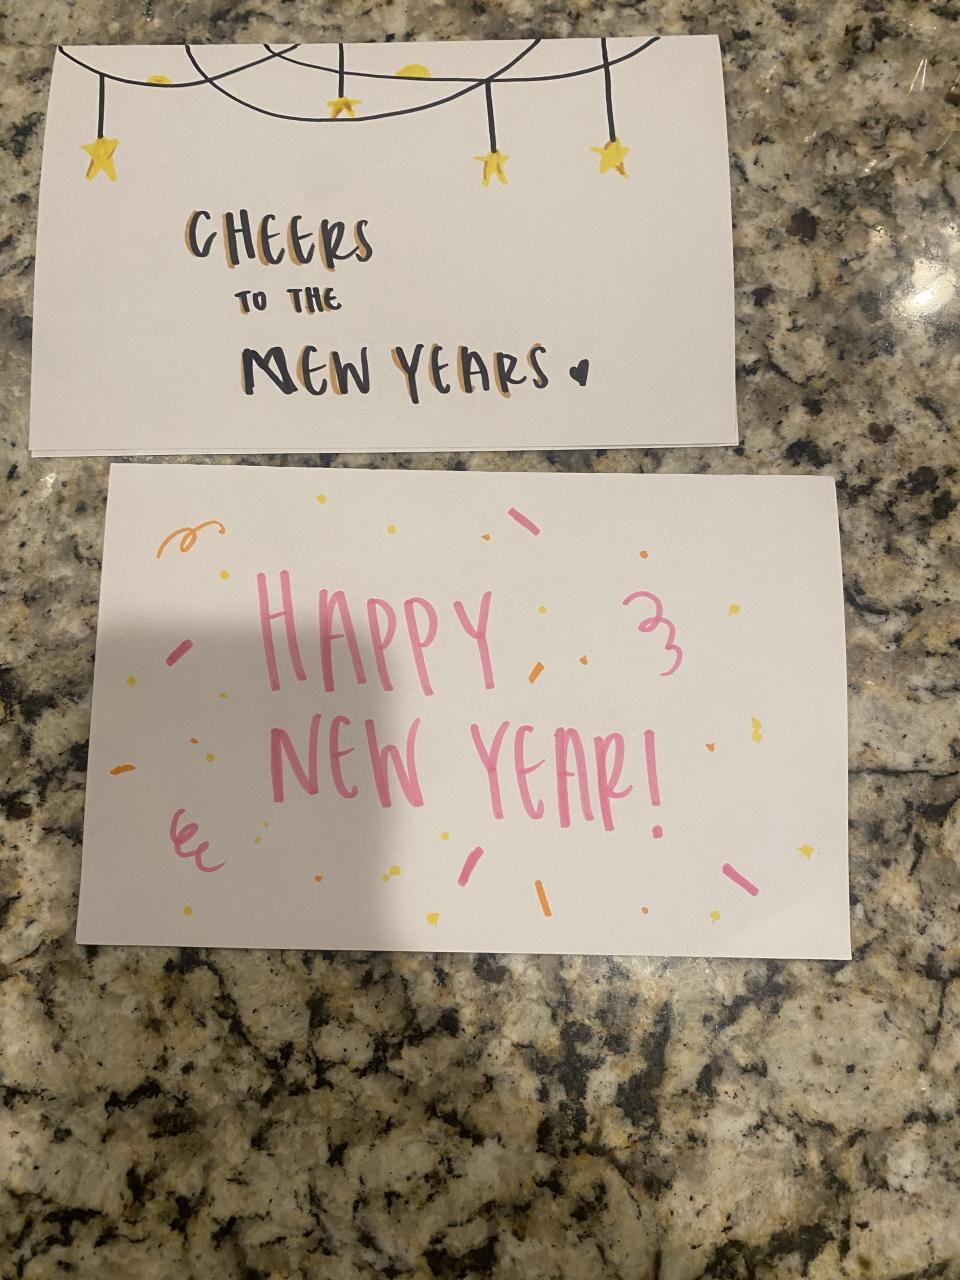 CHEERS
TO THE
NEW YEARS
HAPPY
NEW YEAR!